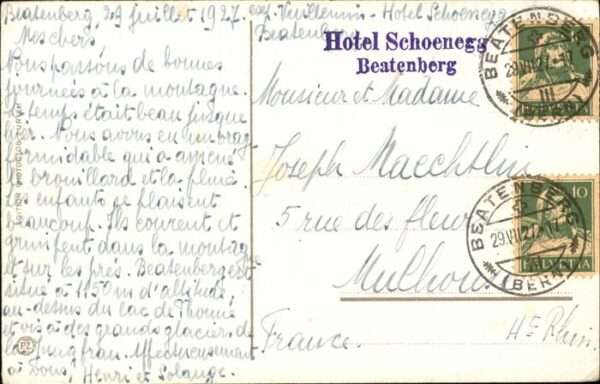 Beatenberg 29 juillet 1927.
Mes chers
Nous passons de bonnes
journées à la montagne.
Le temps était beau jusque
hier. Nous avons eu un orage
formidable qui a amené
le brouillard et la pluie.
Les enfants se plaisent
beaucoup. Ils courent et
grimpent dans la montagne
et sur les prés. Beatenberg est
situé à 1150 m d'altitude,
au-dessus du lac de Thoune
et vis à des grands glaciers de
la Jungfrau. Affectueusement
à vous, Henri et Solange.
exp. Vuillemin - Hotel Schoenegg
Beatenberg
Hotel Schoenegg
Beatenberg
Monsieur et Madame
Joseph Maechtlin
5 rue des fleurs
Mulhouse
France. Ht Rhin.
BEATENBERG
29.VII.27.-17
III
(BERN)
BEATENBERG
29.VII.27.-17
(BERN)
10
HELVETIA